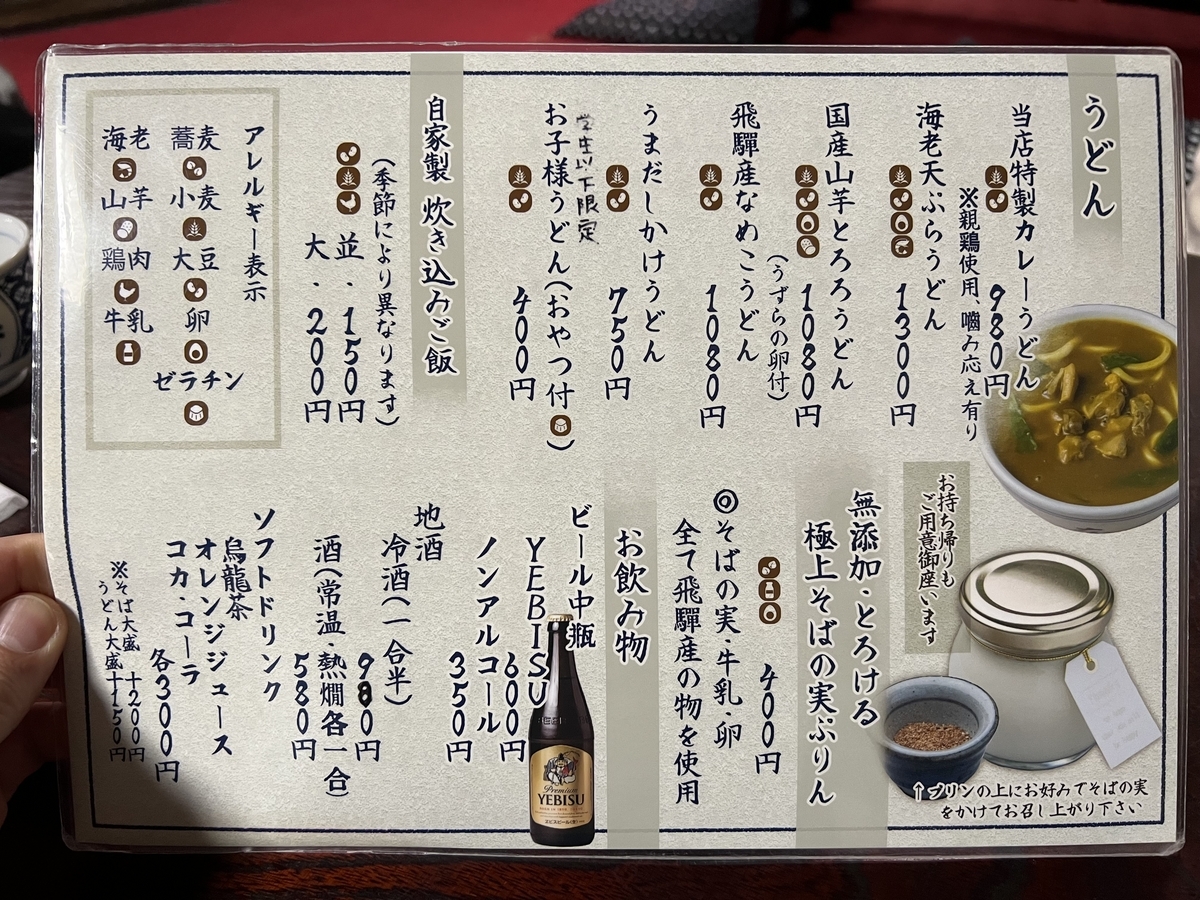 うどん
当店特製カレーうどん
980円
※親鶏使用、嚙み応え有り
海老天ぷらうどん
1300円
国産山芋とろろうどん
1080円
(うずらの卵付)
飛騨産なめこうどん
1080円
うまだしかけうどん
750円
学生以下限定
お子様うどん(おやつ付)
400円
自家製 炊き込みご飯
(季節により異なります)
並・150円
大・200円
アレルギー表示
蕎麦 小麦 大豆 卵 ゼラチン
海老 山芋 鶏肉 牛乳
お持ち帰りも
ご用意御座います
↑プリンの上にお好みでそばの実
をかけてお召し上がり下さい
無添加・とろける
極上そばの実ぷりん
400円
◎そばの実・牛乳・卵
全て飛騨産の物を使用
お飲み物
ビール中瓶
YEBISU
600円
ノンアルコール
350円
地酒
冷酒(一合半)
980円
酒(常温・熱燗各一合)
580円
ソフトドリンク
烏龍茶
オレンジジュース
コカ・コーラ
各300円
※そば大盛 +200円
うどん大盛+150円
Premium
YEBISU
ヱビスビール